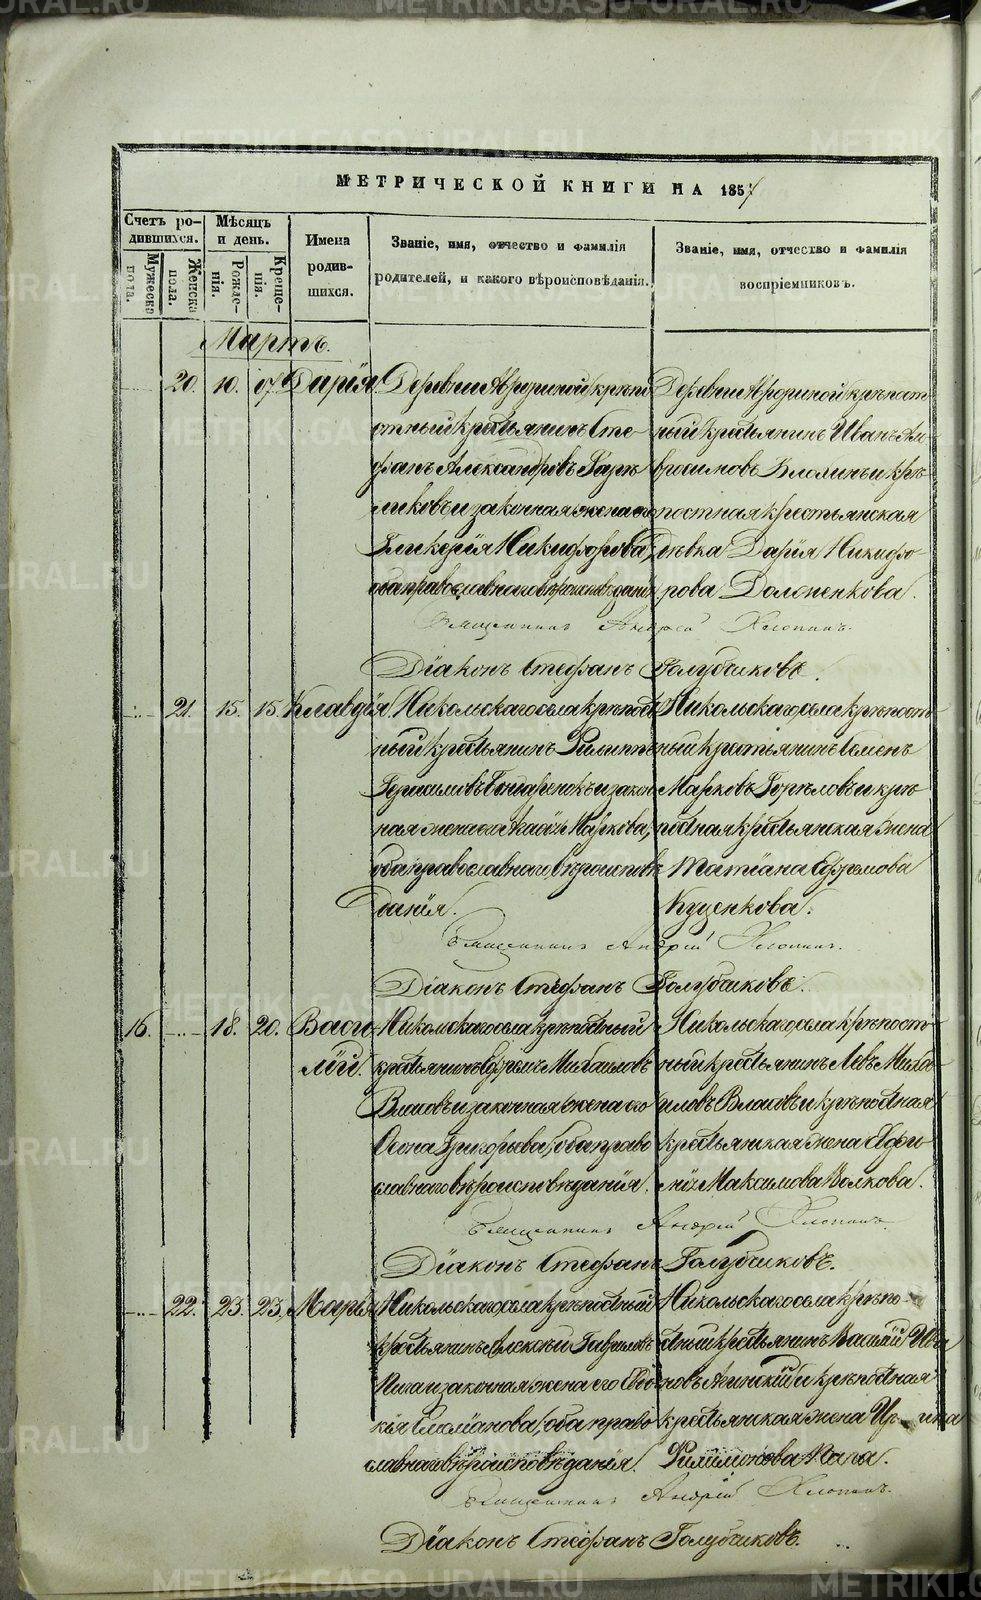 МЕТРИЧЕСКОЙ КНИГИ НА 1857
Счетъ ро-
дившихся.
Мужеска
пола.
Женска
пола.
Мѣсяцъ
и день.
Рожде-
нія.
Креще-
нія.
Имена
родив-
шихся.
Званіе, имя, отчество и фамилія
родителей, и какого вѣроисповѣданія.
Званіе, имя, отчество и фамилія
воспріемниковъ.
Мартъ.
20. 10. Дарія. Деревни крѣпо
стный крестьянинъ Сте
фанъ Александровъ
и законная жена его
Гликерія Никифорова,
оба православнаго вѣроисповѣданія
Деревни крѣпост
ный крестьянинъ Иванъ
и крѣ
постная крестьянская
дѣвка Дарія Никифо
рова Долопенкова.
Священникъ Андрей Хлопин.
Діаконъ Стефанъ Голубчиковъ.
21. 15. 15. Клавдія. Никольскаго села крѣпост
ный крестьянинъ Филиппъ
Герасимовъ и закон
ная жена его Маркова,
оба православнаго вѣроисповѣ
данія.
Никольскаго села крѣпост
ный крестьянинъ Семенъ
Марковъ Горѣловъ и крѣ
постная крестьянская жена
Татіана Ефремова
Куценкова.
Священникъ Андрей Хлопин.
Діаконъ Стефанъ Голубчиковъ.
16. 18. 20. Васи
лій. Никольскаго села крѣпостный
крестьянинъ Ефремъ Михаиловъ
Власовъ и законная жена его
Григорьева, оба право
славнаго вѣроисповѣданія.
Никольскаго села крѣпост
ный крестьянинъ Левъ Миха
иловъ Власовъ и крѣпостная
крестьянская жена Евфи
мія Максимова Волкова.
Священникъ Андрей Хлопин.
Діаконъ Стефанъ Голубчиковъ.
22. 23. 23. Марья Никольскаго села крѣпостный
крестьянинъ Алексѣй Гавриловъ
и законная жена его Евдо
кія оба право
славнаго вѣроисповѣданія.
Никольскаго села крѣпо
стный крестьянинъ Василій Ива
новъ и крѣпостная
крестьянская жена
Филимонова
Священникъ Андрей Хлопин.
Діаконъ Стефанъ Голубчиковъ.
METRIKI.GASO-URAL.RU